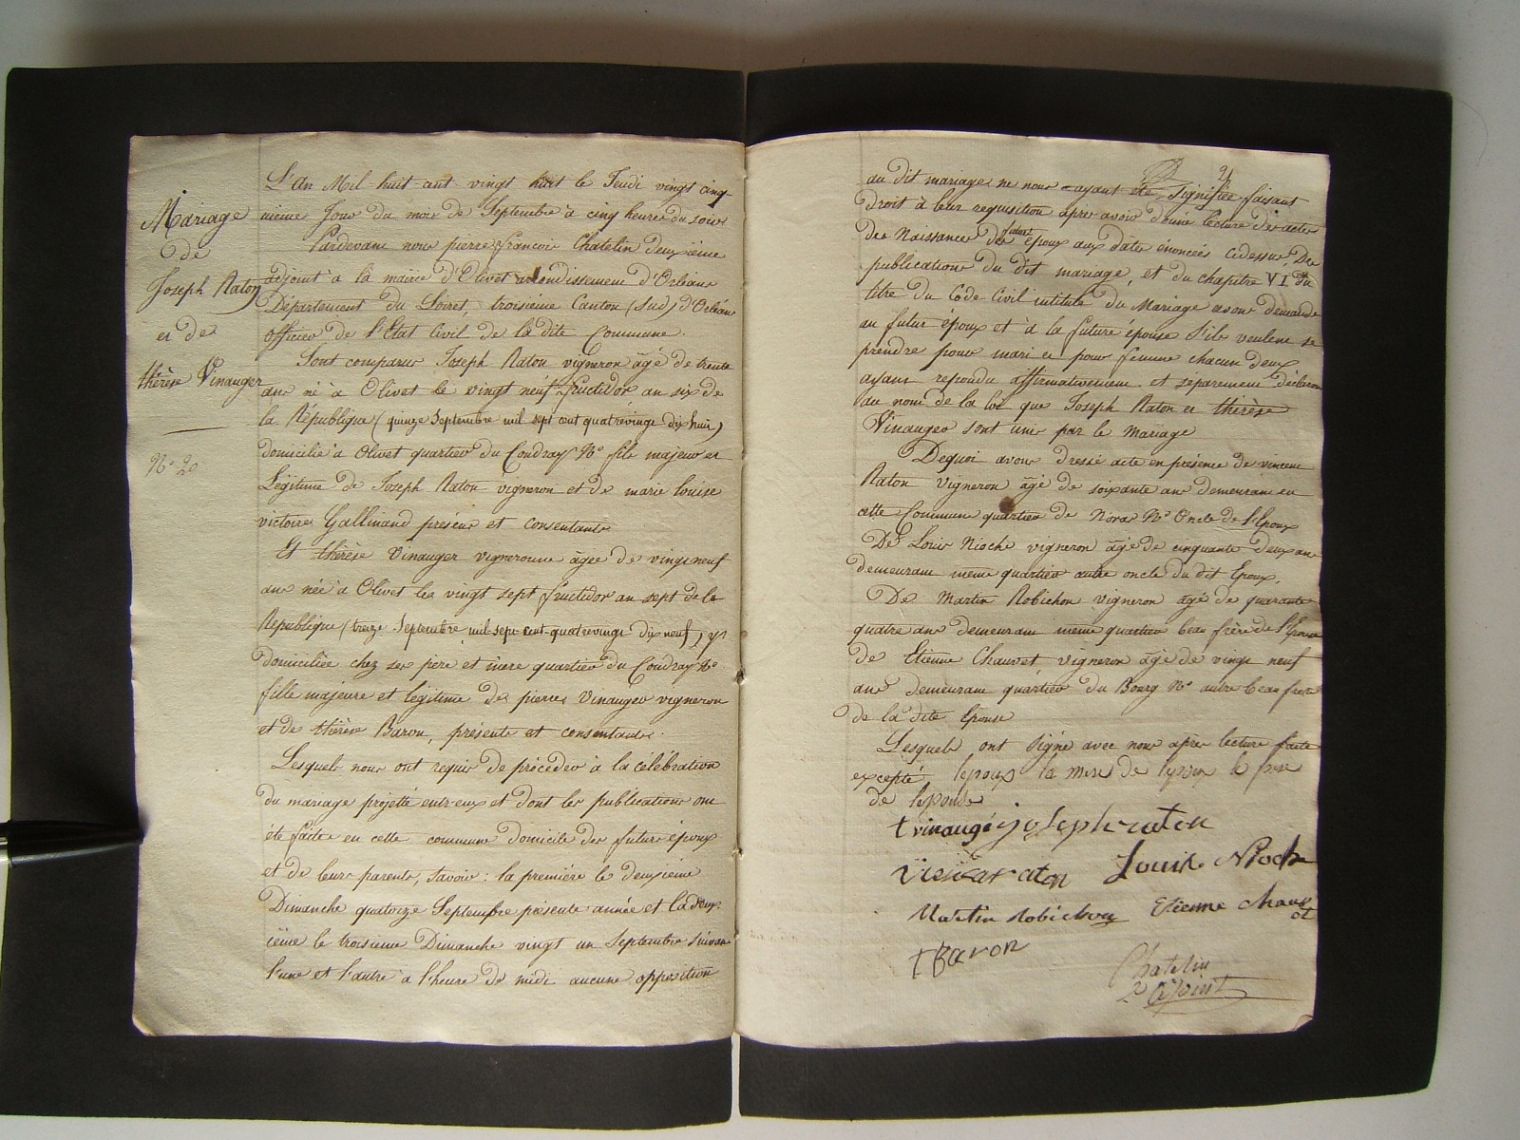 Mariage
de
Joseph Raton
et de
thérèse Vinauger
N° 20
L'an Mil huit cent vingt huit le Jeudi vingt cinq
ième Jour du mois de Septembre à cinq heures du soir
Pardevant nous pierre françois Chatelin deuxième
adjoint à la mairie d'Olivet arrondissement d'Orléans
Département du Loiret, troisième Canton (Sud) d'Orléans
officier de l'Etat Civil de la dite Commune.
Sont comparus Joseph Raton vigneron âgé de trente
ans né à Olivet le vingt neuf fructidor an six de
la République (quinze Septembre mil sept cent quatrevingt dix huit)
domicilié à Olivet quartier du Coudray N° fils majeur et
Légitime de Joseph Raton vigneron et de marie louise
victoire Gallinand présens et consentants
Et thérèse Vinauger vigneronne âgée de vingt neuf
ans née à Olivet les vingt sept fructidor an sept de la
République (treize Septembre mil sept cent quatrevingt dix neuf)
domiciliée chez ses père et mère quartier du Coudray N°
fille majeure et légitime de pierre Vinauger vigneron
et de thérèse Baron, présents et consentants.
Lesquels nous ont requis de procéder à la célébration
du mariage projetté entr'eux et dont les publications ont
été faites en cette commune domicile des futurs époux
et de leurs parents, savoir : la première le deuxième
Dimanche quatorze Septembre présente année et la deux-
ième le troisième Dimanche vingt un Septembre suivant
l'une et l'autre à l'heure de midi aucune opposition
21
au dit mariage ne nous ayant été signifiée faisant
droit à leur requisition après avoir donné lecture des actes
de Naissances des futurs époux aux dates énoncées cidessus De
publication du dit mariage, et du chapitre VI du
titre du Code Civil intitulé du Mariage avons demandé
au futur époux et à la future épouse s'ils veulent se
prendre pour mari et pour femme chacun d'eux
ayant répondu affirmativement et séparément déclarons
au nom de la loi que Joseph Raton et thérèse
Vinauger sont unis par le mariage
Dequoi avons dressé acte en présence de vincent
Raton vigneron âgé de soixante ans demeurant en
cette Commune quartier de Noras N° Oncle de l'Epoux
De Louis Nioche vigneron âgé de cinquante deux ans
demeurant même quartier autre oncle du dit Epoux.
De Martin Robichon vigneron âgé de quarante
quatre ans demeurant même quartier beau frère de l'Epouse
de Etienne Chauvet vigneron âgé de vingt neuf
ans demeurant quartier du Bourg N° autre beau frère
de la dite Epouse
Lesquels ont signé avec nous après lecture faite
excepté lepoux la mere de lepoux le pere
de lepouse
t vinaugé joseph raton
vincent raton Louis Nioche
Martin Robichon Etienne Chauvet
t Baron
Chatelin
2e adjoint